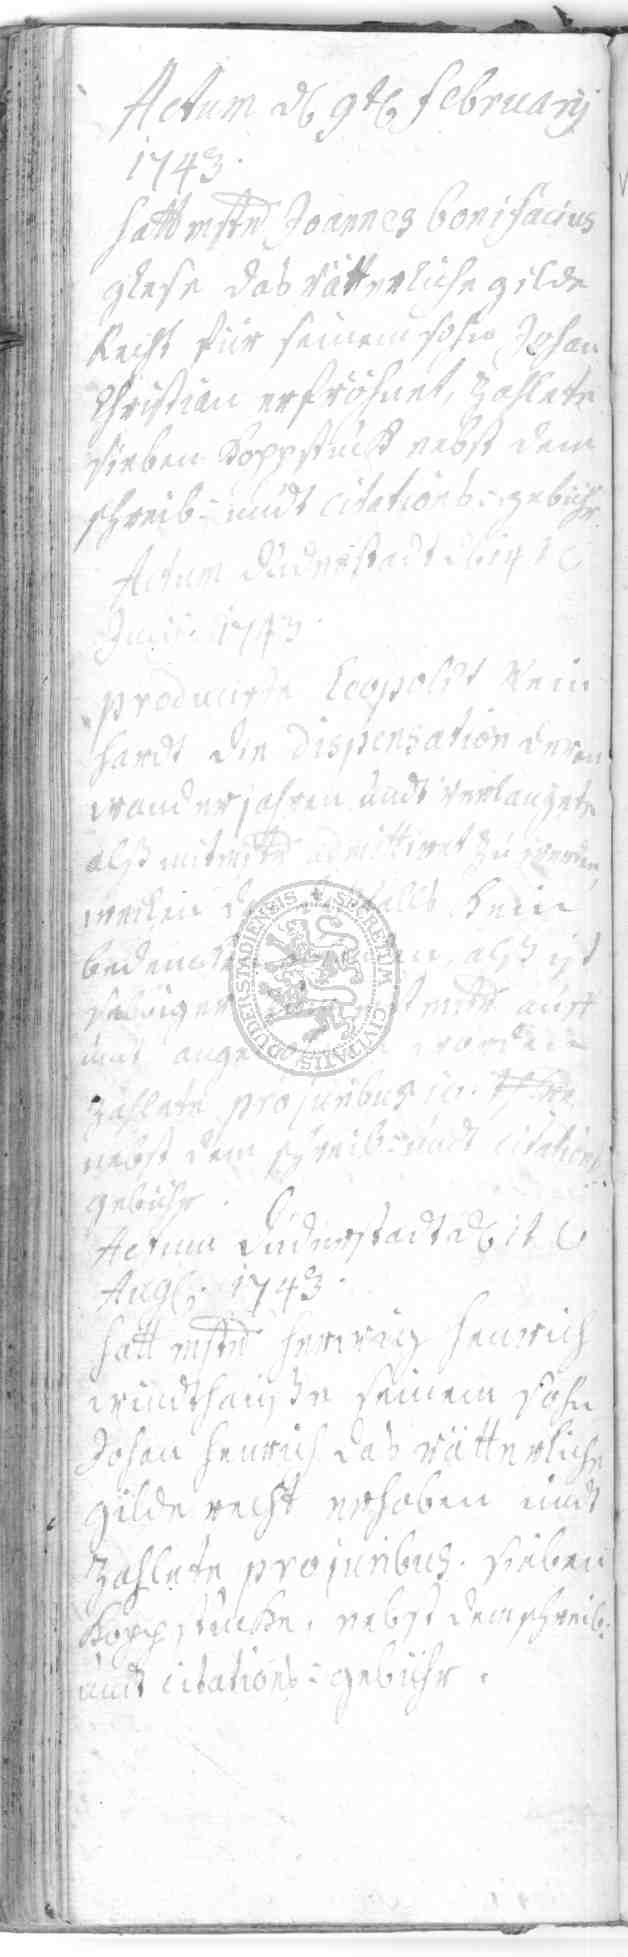 Actum d 9t february
1743.
hatt mstr Joannes bonifacius
glese das vätterliche gilde
Recht für seinem sohn Johan
Christian erfröhnet, zahlete
sieben Koppstück nebst dem
schreib- undt citations-gebühr
Actum Duderstadt d 14 t
1743.
producirte Leopoldt Rein
hardt die dispensation deren
wander jahren undt verlangete
alß mitmstr admittiret zu werden,
weilen falls kein
bedencken alß ist
selbiger mstr auff
undt worden
zahlete pro juribus
nebst dem schreib- undt citations
gebühr.
Actum Duderstadt d 1t
Aug 1743.
hatt mstr herwig henrich
windthausße seinem sohn
Johan henrich das vätterliche
gilde recht erhoben undt
zahlete pro juribus sieben
Koppstücke, nebst dem schreib-
undt citations-gebühr.
SECRETUM CIVITATIS DUDERSTADIENSIS